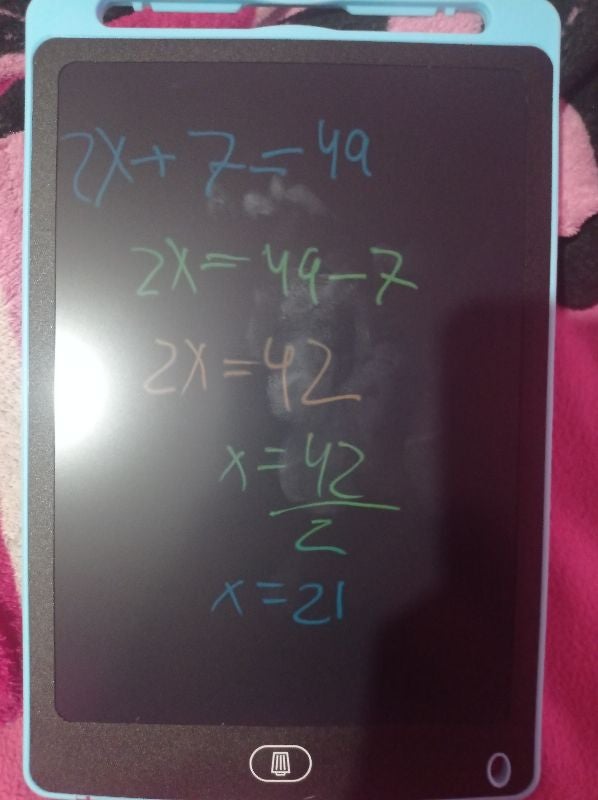 2x+7=49
2x=49-7
2x=42
x=42/2
x=21